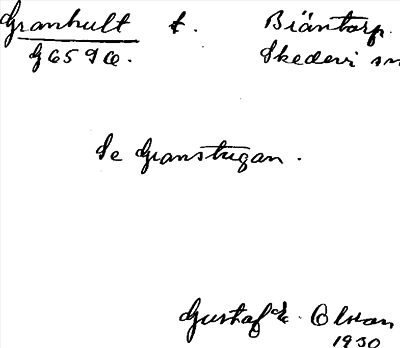 Granhult t. Biäntorp.
G 65 9 Œ. Skedevi sn
Se Granstugan.
Gustaf E. Olsson
1930